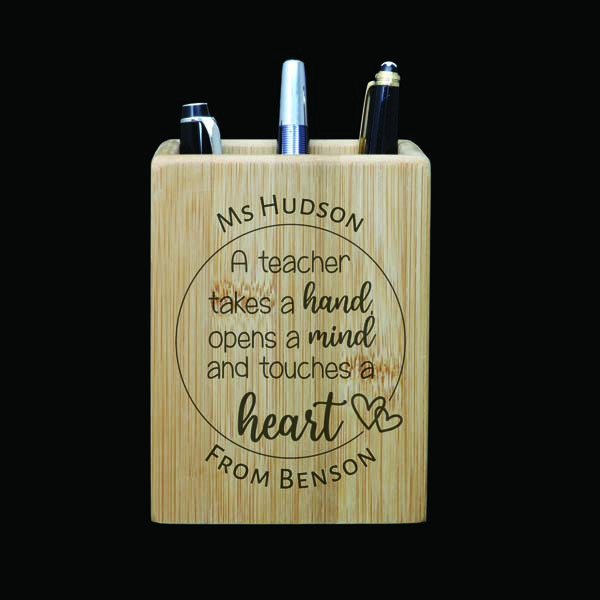 Ms Hudson
A teacher
takes a hand,
opens a mind
and touches a
heart
From Benson